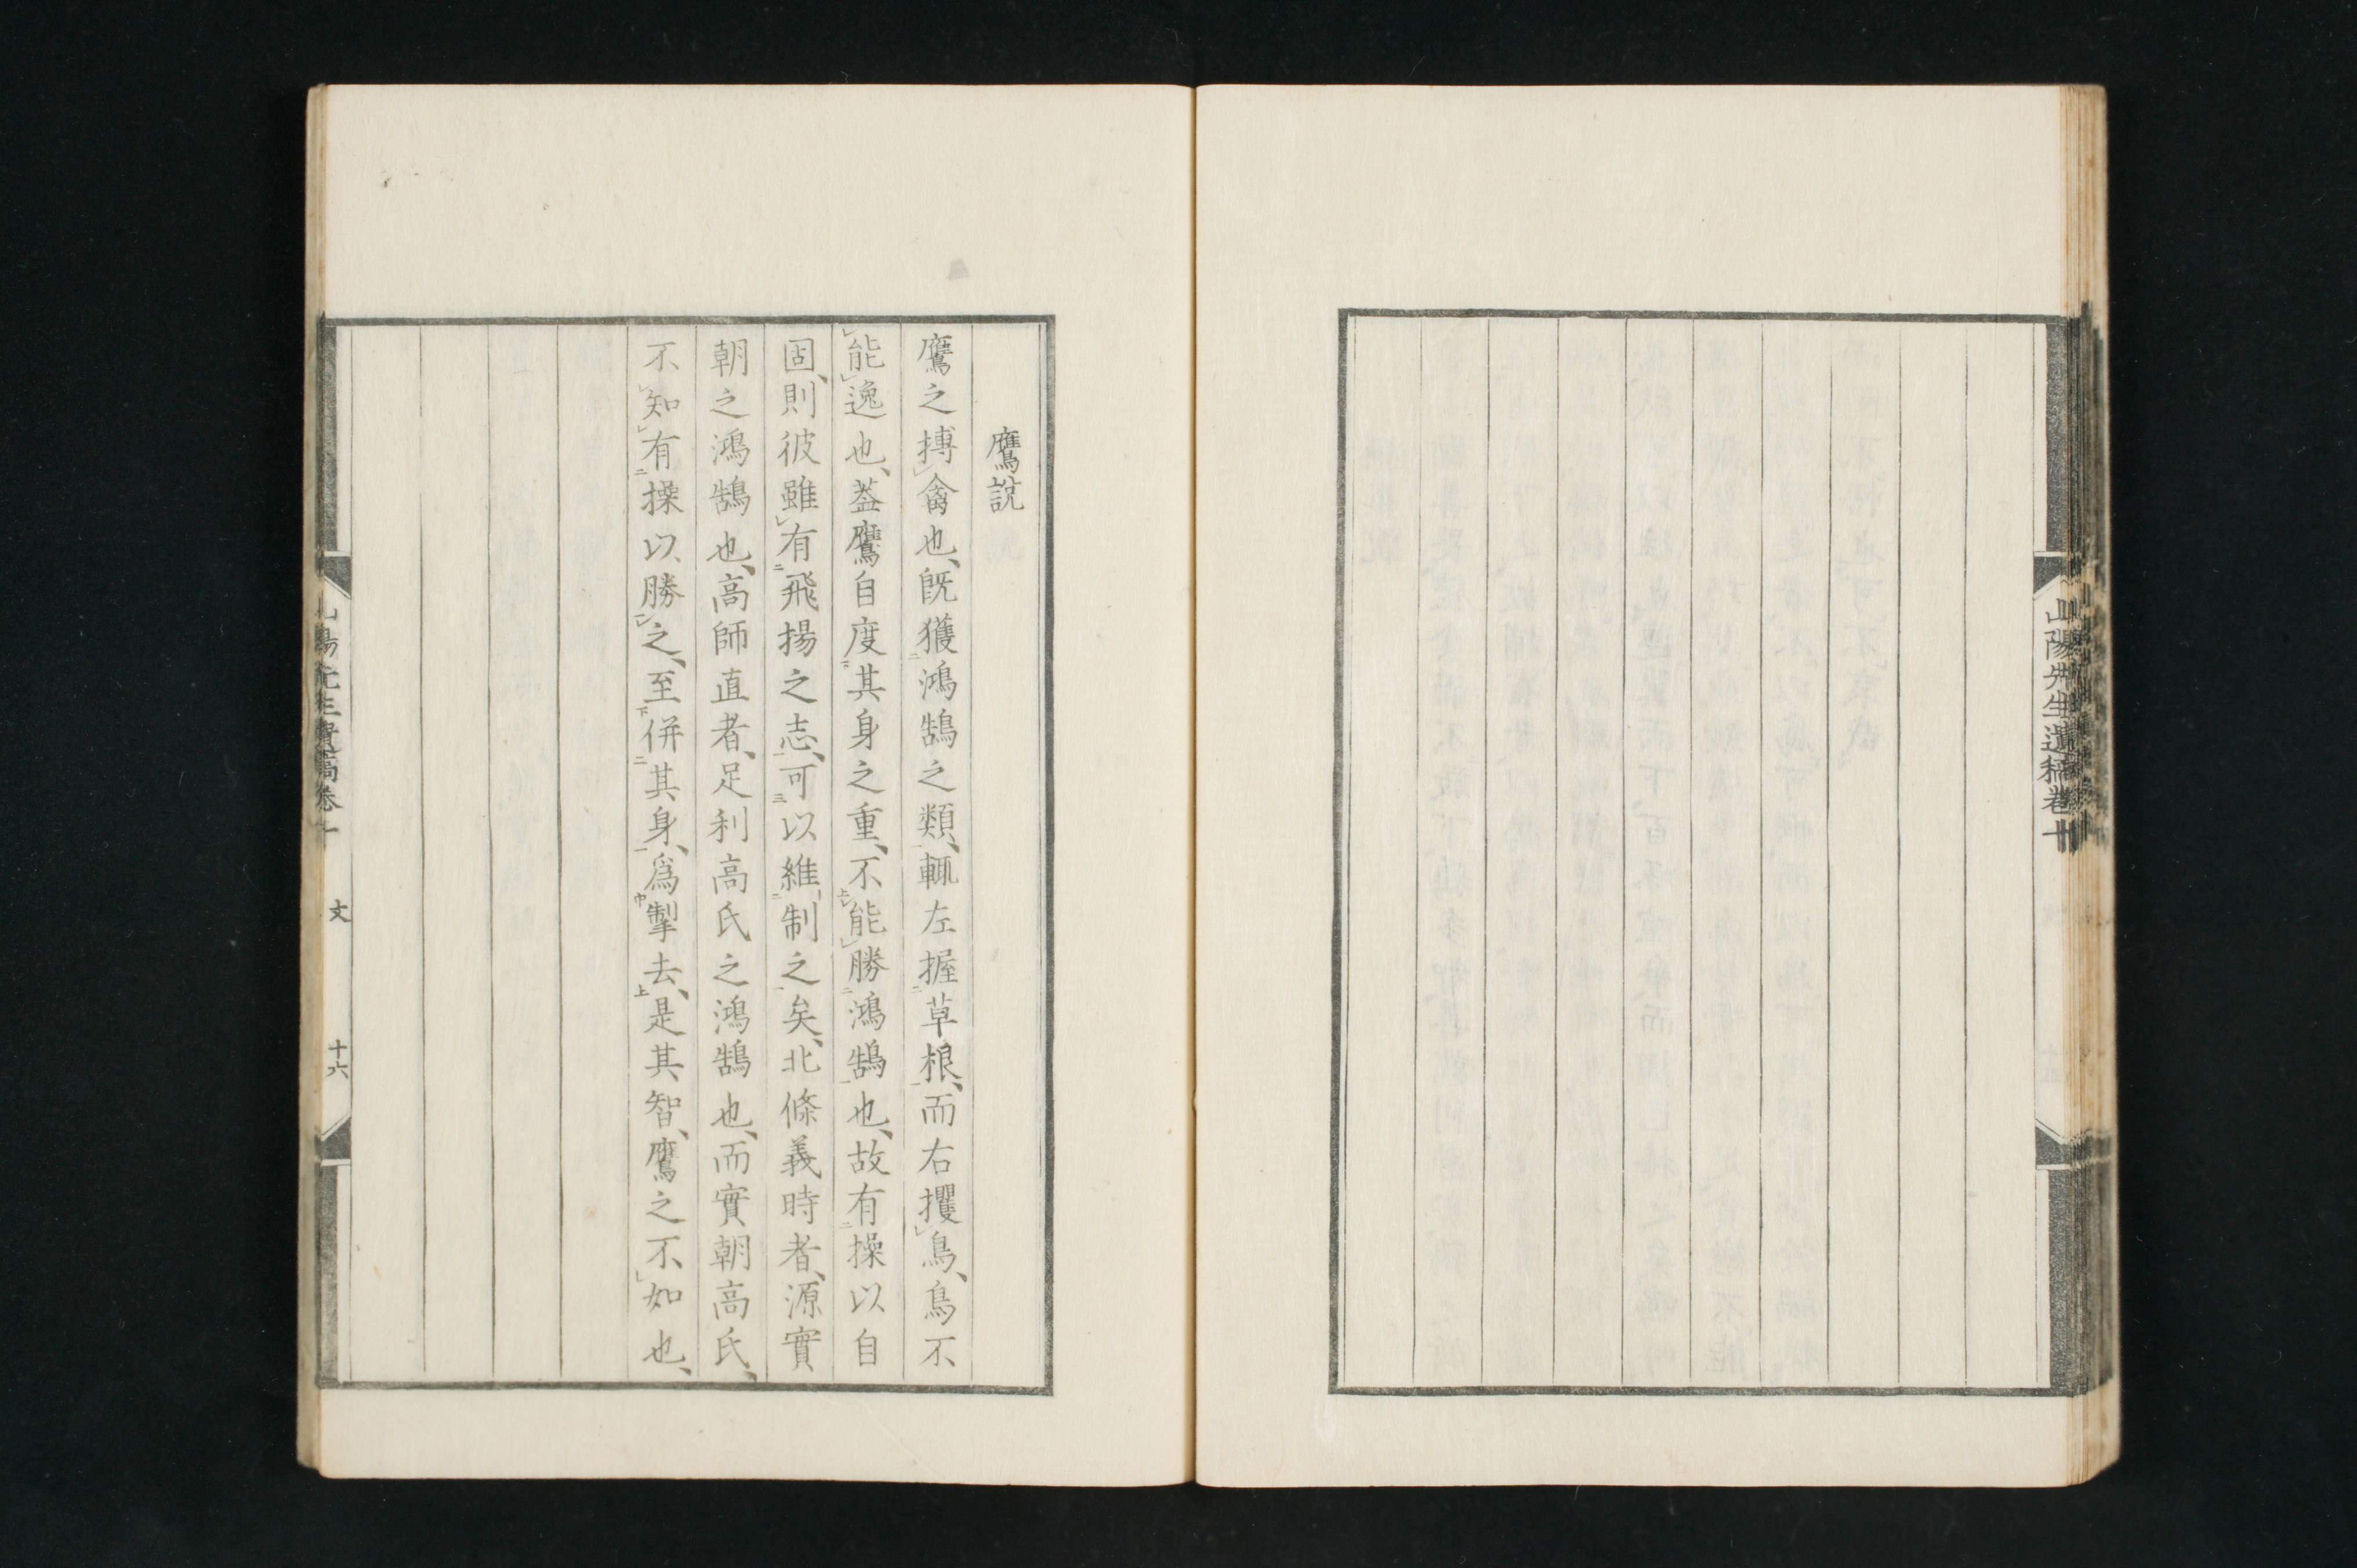 山陽先生遺稿卷十
鷹說
鷹之搏禽也、既獲鴻鵠之類、輒左握草根、而右攫鳥、鳥不
能逸也、蓋鷹自度其身之重、不能勝鴻鵠也、故有操以自
固、則彼雖有飛揚之志、可以維制之矣、北條義時者、源實
朝之鴻鵠也、高師直者、足利高氏之鴻鵠也、而實朝高氏、
不知有操以勝之、至併其身、爲掣去、是其智、鷹之不如也、
文
十六